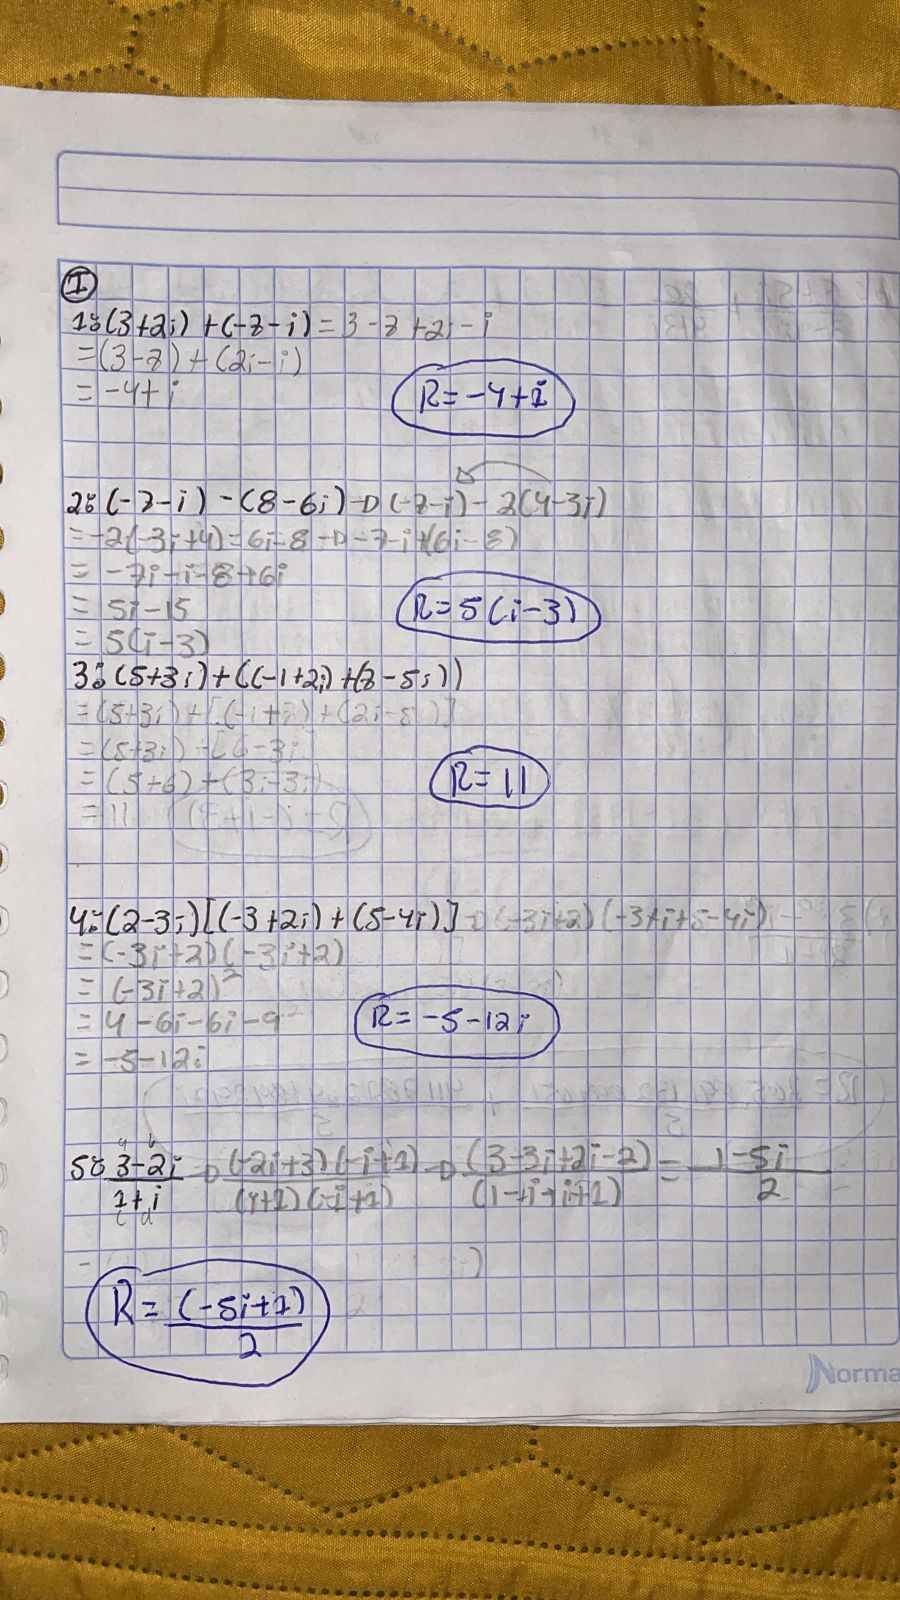 I
1: (3+2i) + (-7-i) = 3-7+2i-i
= (3-7) + (2i-i)
= -4+i
R = -4+i
2: (-7-i) - (8-6i) → (-7-i) - 2(4-3i)
= -2(-3i+4) = 6i-8 → -7-i+(6i-8)
= -7i-i-8+6i
= 5i-15
= 5(i-3)
R = 5(i-3)
3: (5+3i) + ((-1+2i) + (7-5i))
= (5+3i) + [(-1+7) + (2i-5i)]
= (5+3i) + [6-3i]
= (5+6) + (3i-3i)
= 11
R = 11
4: (2-3i)[(-3+2i) + (5-4i)] → (-3i+2)(-3+i+5-4i)
= (-3i+2)(-3i+2)
= (-3i+2)²
= 4-6i-6i-9
= -5-12i
R = -5-12i
a b
5: 3-2i/1+i → (-2i+3)(-i+1)/(i+1)(-i+1) → (3-3i+2i-2)/(1-i+i+1) = 1-5i/2
c d
R = (-5i+1)/2
Norma